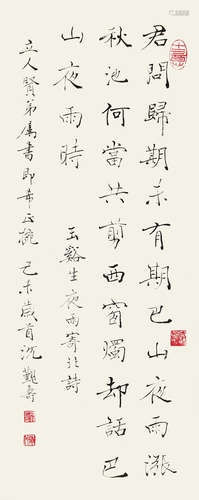 君問歸期未有期巴山夜雨漲
秋池何當共剪西窗燭却話巴
山夜雨時 玉谿生夜雨寄北詩
立人賢弟属書即希正疵 己未歲首沉觀壽